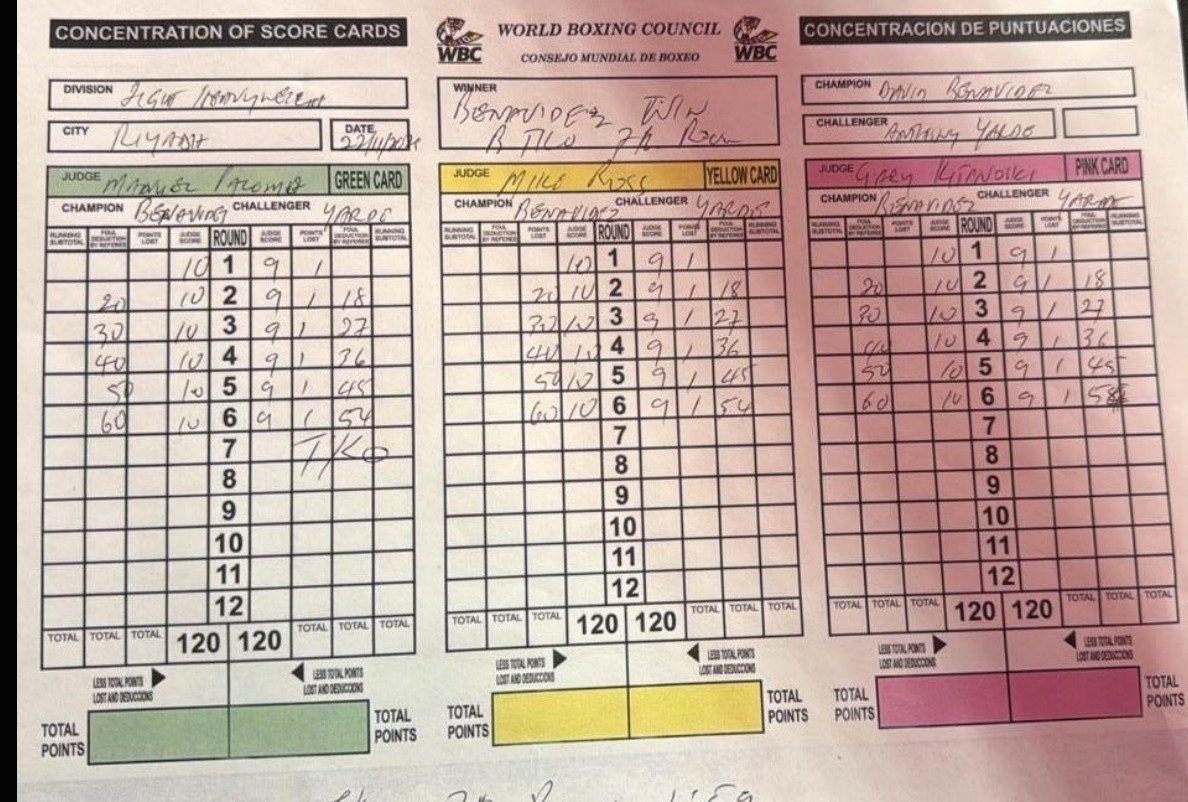 CONCENTRATION OF SCORE CARDS
WBC
WORLD BOXING COUNCIL
CONSEJO MUNDIAL DE BOXEO
WBC
CONCENTRACION DE PUNTUACIONES
DIVISION LIGHT HEAVYWEIGHT
CITY RIYADH
DATE
WINNER
BENAVIDEZ WIN
CHAMPION DAVID BENAVIDEZ
CHALLENGER ANTHONY YARDE
JUDGE MANUEL PALOMO GREEN CARD
CHAMPION BENAVIDEZ CHALLENGER YARDE
RUNNING SUBTOTAL FOUL DEDUCTION BY REFEREE POINTS LOST JUDGE SCORE ROUND JUDGE SCORE POINTS LOST FOUL DEDUCTION BY REFEREE RUNNING SUBTOTAL
10 1 9 1
20 10 2 9 1 18
30 10 3 9 1 27
40 10 4 9 1 36
50 10 5 9 1 45
60 10 6 9 1 54
7 T/KO
8
9
10
11
12
TOTAL TOTAL TOTAL 120 120 TOTAL TOTAL TOTAL
LESS TOTAL POINTS LOST AND DEDUCCIONS
LESS TOTAL POINTS LOST AND DEDUCCIONS
TOTAL POINTS
TOTAL POINTS
JUDGE MIKE ROSS YELLOW CARD
CHAMPION BENAVIDEZ CHALLENGER YARDE
RUNNING SUBTOTAL FOUL DEDUCTION BY REFEREE POINTS LOST JUDGE SCORE ROUND JUDGE SCORE POINTS LOST FOUL DEDUCTION BY REFEREE RUNNING SUBTOTAL
10 1 9 1
20 10 2 9 1 18
30 10 3 9 1 27
40 10 4 9 1 36
50 10 5 9 1 45
60 10 6 9 1 54
7
8
9
10
11
12
TOTAL TOTAL TOTAL 120 120 TOTAL TOTAL TOTAL
LESS TOTAL POINTS LOST AND DEDUCCIONS
LESS TOTAL POINTS LOST AND DEDUCCIONS
TOTAL POINTS
TOTAL POINTS
JUDGE PINK CARD
CHAMPION BENAVIDEZ CHALLENGER YARDE
RUNNING SUBTOTAL FOUL DEDUCTION BY REFEREE POINTS LOST JUDGE SCORE ROUND JUDGE SCORE POINTS LOST FOUL DEDUCTION BY REFEREE RUNNING SUBTOTAL
10 1 9 1
20 10 2 9 1 18
30 10 3 9 1 27
40 10 4 9 1 36
50 10 5 9 1 45
60 10 6 9 1
7
8
9
10
11
12
TOTAL TOTAL TOTAL 120 120 TOTAL TOTAL TOTAL
LESS TOTAL POINTS LOST AND DEDUCCIONS
LESS TOTAL POINTS LOST AND DEDUCCIONS
TOTAL POINTS
TOTAL POINTS